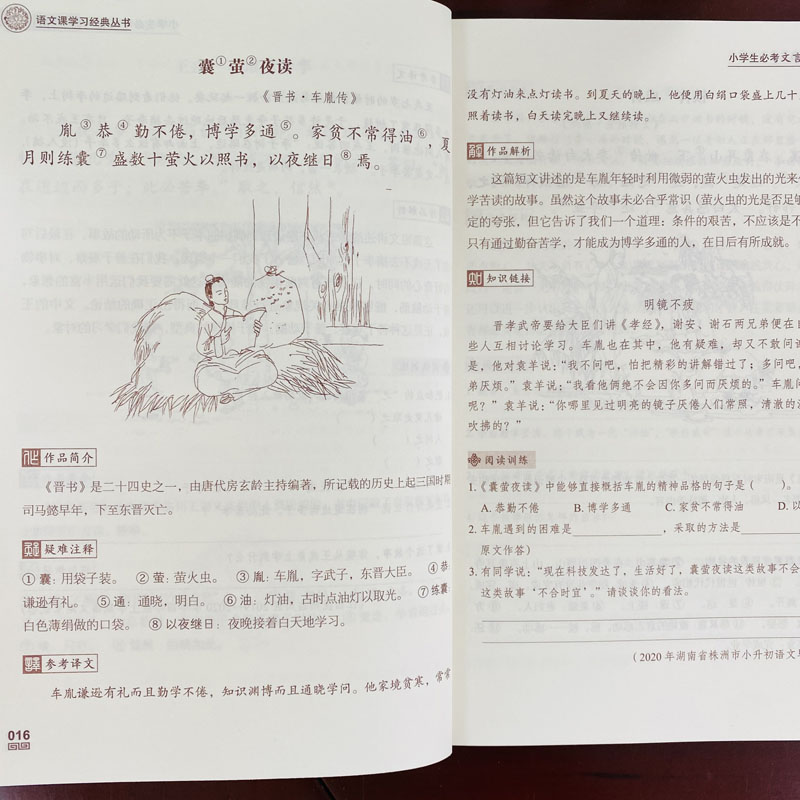 语文课学习经典丛书
囊①萤②夜读
《晋书·车胤传》
胤③恭④勤不倦，博学多通⑤。家贫不常得油⑥，夏
月则练囊⑦盛数十萤火以照书，以夜继日⑧焉。
作品简介
《晋书》是二十四史之一，由唐代房玄龄主持编著，所记载的历史上起三国时期
司马懿早年，下至东晋灭亡。
疑难注释
①囊：用袋子装。 ②萤：萤火虫。 ③胤：车胤，字武子，东晋大臣。 ④恭：
谦逊有礼。 ⑤通：通晓，明白。 ⑥油：灯油，古时点油灯以取光。 ⑦练囊：
白色薄绢做的口袋。 ⑧以夜继日：夜晚接着白天地学习。
参考译文
车胤谦逊有礼而且勤学不倦，知识渊博而且通晓学问。他家境贫寒，常常
016
小学生必考文言
没有灯油来点灯读书。到夏天的晚上，他便用白绢口袋盛上几十
照着读书，白天读完晚上又继续读。
作品解析
这篇短文讲述的是车胤年轻时利用微弱的萤火虫发出的光来
学苦读的故事。虽然这个故事未必合乎常识（萤火虫的光是否足够
定的夸张，但它告诉了我们一个道理：条件的艰苦，不应该是不
只有通过勤奋苦学，才能成为博学多通的人，在日后有所成就。
知识链接
明镜不疲
晋孝武帝要给大臣们讲《孝经》，谢安、谢石两兄弟便在自
些人互相讨论学习。车胤也在其中，他有疑难，却又不敢问谢
是，他对袁羊说：“我不问吧，怕把精彩的讲解错过了；多问吧，
弟厌烦。”袁羊说：“我看他俩绝不会因你多问而厌烦的。”车胤问
呢？”袁羊说：“你哪里见过明亮的镜子厌倦人们常照，清澈的流
吹拂的？”
阅读训练
1.《囊萤夜读》中能够直接概括车胤的精神品格的句子是（ ）。
A. 恭勤不倦 B. 博学多通 C. 家贫不常得油 D. 以
2. 车胤遇到的困难是____________，采取的方法是
原文作答）
3. 有同学说：“现在科技发达了，生活好了，囊萤夜读这类故事不会
这类故事‘不合时宜’。”请谈谈你的看法。
（2020年湖南省株洲市小升初语文